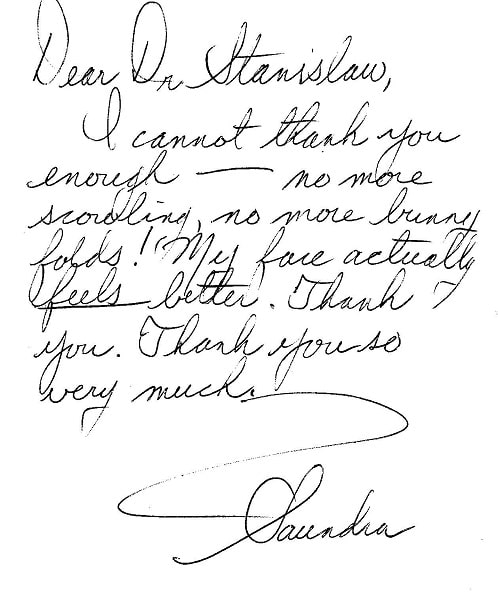 Dear Dr. Stanislaw,
I cannot thank you
enough — no more
scowling, no more bunny
folds! My face actually
feels better. Thank
you. Thank you so
very much.
Saundra